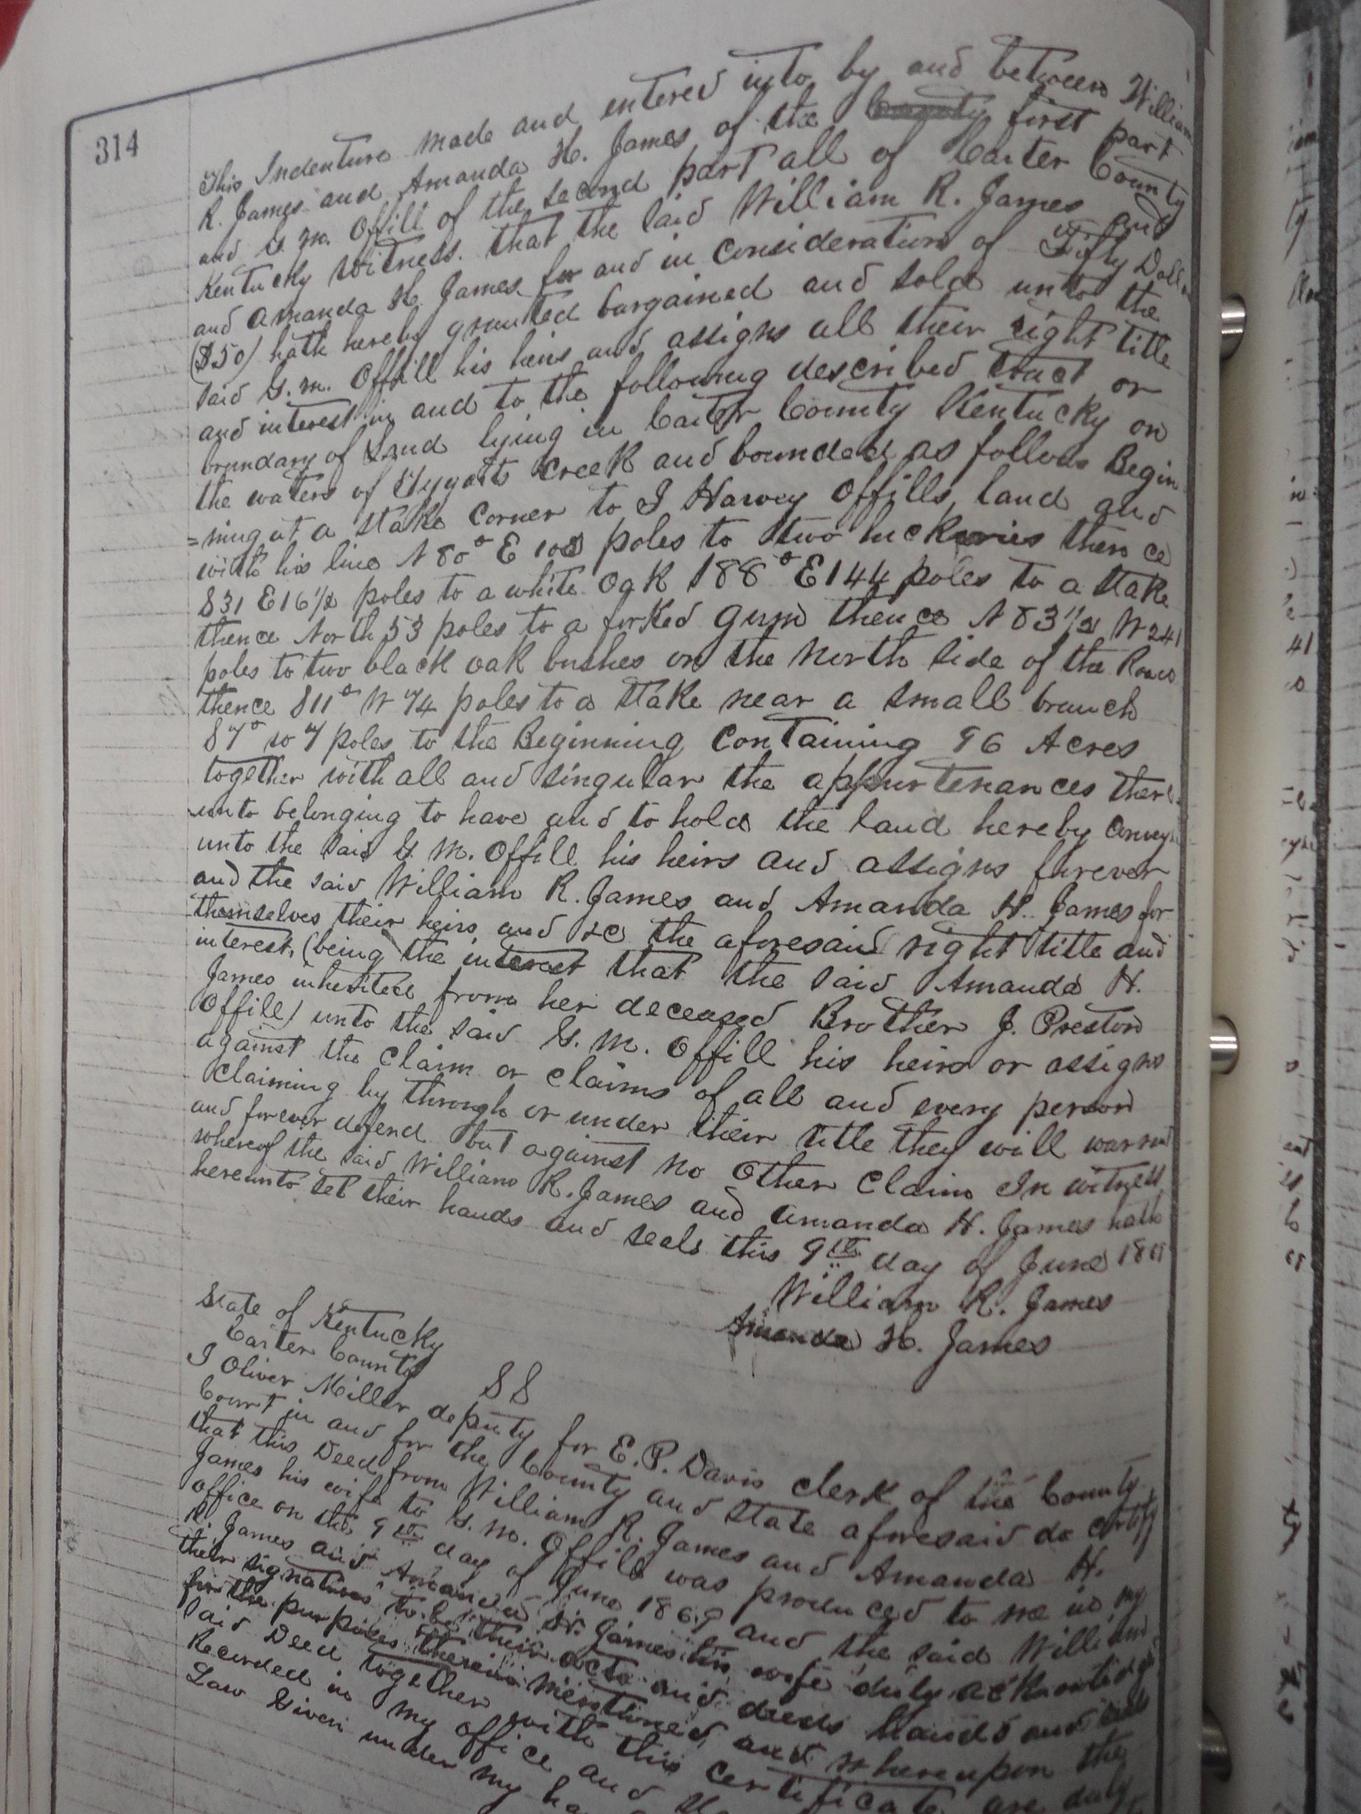 314
This Indenture made and entered into by and between William
R. James and Amanda H. James of the County first part
and G. M. Offill of the second part all of Carter County
Kentucky Witness. that the said William R. James and
and Amanda H. James for and in consideration of Fifty Dollars
($50) hath hereby granted bargained and sold unto the
said G. M. Offill his heirs and assigns all their right title
and interest in and to the following described tract or
boundary of Land lying in Carter County Kentucky on
the waters of Tygarts Creek and bounded as follows Begin
=ning at a stake corner to J Harvey Offills, land and
with his line N 80° E 103 poles to two hickories thence
S31 E16½ poles to a white Oak S88° E144 poles to a stake
thence North 53 poles to a forked gum thence N 83½ W 241
poles to two black oak bushes on the North side of the Road
thence S11° W 74 poles to a stake near a small branch
S7° W 7 poles to the Beginning containing 96 Acres
together with all and singular the appurtenances there
unto belonging to have and to hold the land hereby conveyed
unto the said G. M. Offill his heirs and assigns forever
and the said William R. James and Amanda H. James for
themselves their heirs and &c the aforesaid right title and
interest, (being the interest that the said Amanda H.
James inherited from her deceased Brother J. Preston
Offill) unto the said G. M. Offill his heirs or assigns
against the claim or claims of all and every person
claiming by through or under their title they will warrant
and forever defend but against no other claim In witness
whereof the said William R. James and Amanda H. James hath
hereunto set their hands and seals this 9th day of June
William R. James
Amanda H. James
State of Kentucky
Carter County SS
I Oliver Miller deputy for E. P. Davis clerk of the County
Court in and for the County and State aforesaid do certify
that this Deed from William R. James and Amanda H.
James his wife to G. M. Offill was produced to me in my
office on the 9th day of June 1869 and the said William
R. James and Amanda H. James his wife duly acknowledged
their signatures to be their acts and deeds hands and seals
for the purposes therein mentioned and whereupon the
said Deed together with this certificate are duly
Recorded in my office and
Law Given under my